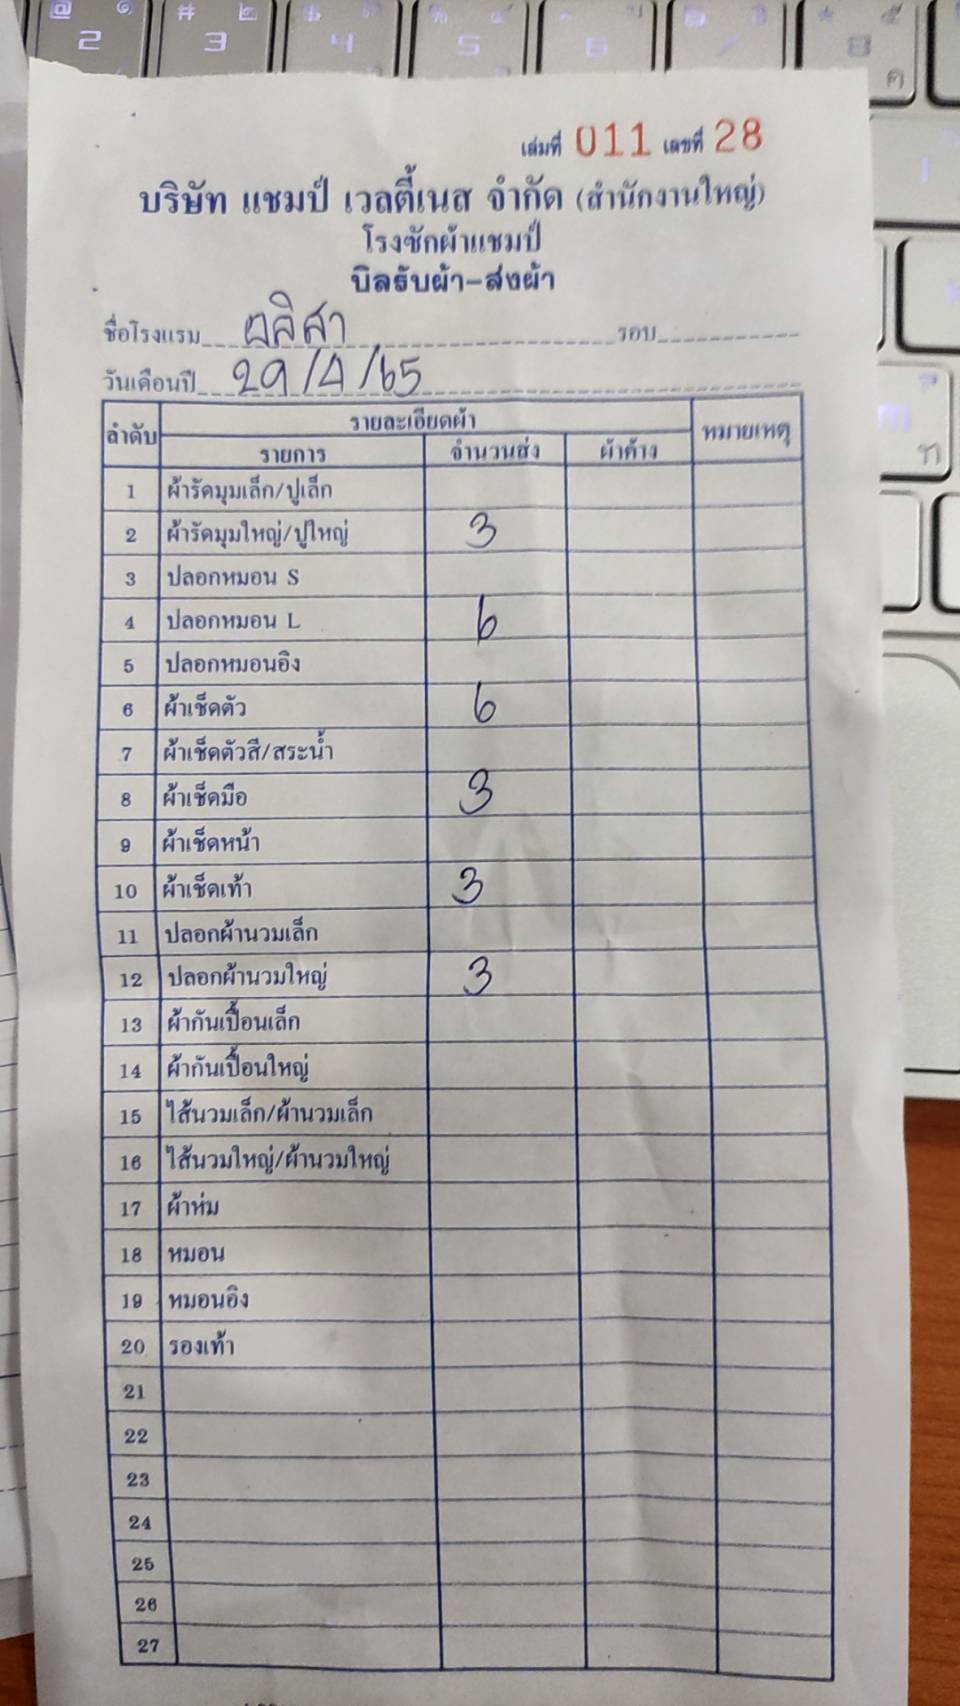 @ ๑ # ๒
2 3 4 5 6 8 ค
เล่มที่ 011 เลขที่ 28
บริษัท แชมป์ เวลตี้เนส จำกัด (สำนักงานใหญ่)
โรงซักผ้าแชมป์
บิลรับผ้า-ส่งผ้า
ชื่อโรงแรม อลิสา รอบ
วันเดือนปี 29/4/65
ลำดับ รายละเอียดผ้า หมายเหตุ
รายการ จำนวนส่ง ผ้าค้าง
1 ผ้ารัดมุมเล็ก/ปูเล็ก
2 ผ้ารัดมุมใหญ่/ปูใหญ่ 3
3 ปลอกหมอน S
4 ปลอกหมอน L 6
5 ปลอกหมอนอิง
6 ผ้าเช็ดตัว 6
7 ผ้าเช็ดตัวสี/สระน้ำ
8 ผ้าเช็ดมือ 3
9 ผ้าเช็ดหน้า
10 ผ้าเช็ดเท้า 3
11 ปลอกผ้านวมเล็ก
12 ปลอกผ้านวมใหญ่ 3
13 ผ้ากันเปื้อนเล็ก
14 ผ้ากันเปื้อนใหญ่
15 ไส้นวมเล็ก/ผ้านวมเล็ก
16 ไส้นวมใหญ่/ผ้านวมใหญ่
17 ผ้าห่ม
18 หมอน
19 หมอนอิง
20 รองเท้า
21
22
23
24
25
26
27